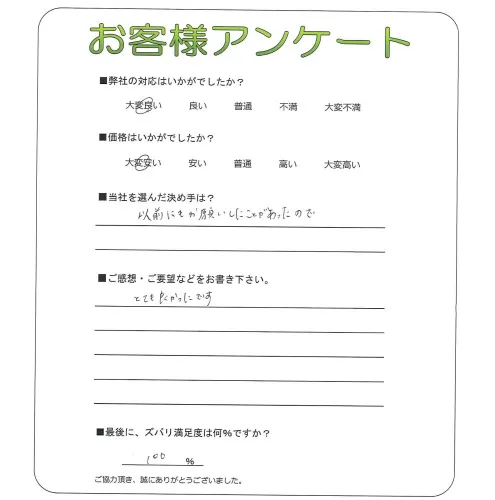 お客様アンケート
■弊社の対応はいかがでしたか?
大変良い 良い 普通 不満 大変不満
■価格はいかがでしたか?
大変安い 安い 普通 高い 大変高い
■当社を選んだ決め手は?
以前にもお願いしたことがあったので
■ご感想・ご要望などをお書き下さい。
とても良かったです
■最後に、ズバリ満足度は何%ですか?
100 %
ご協力頂き、誠にありがとうございました。